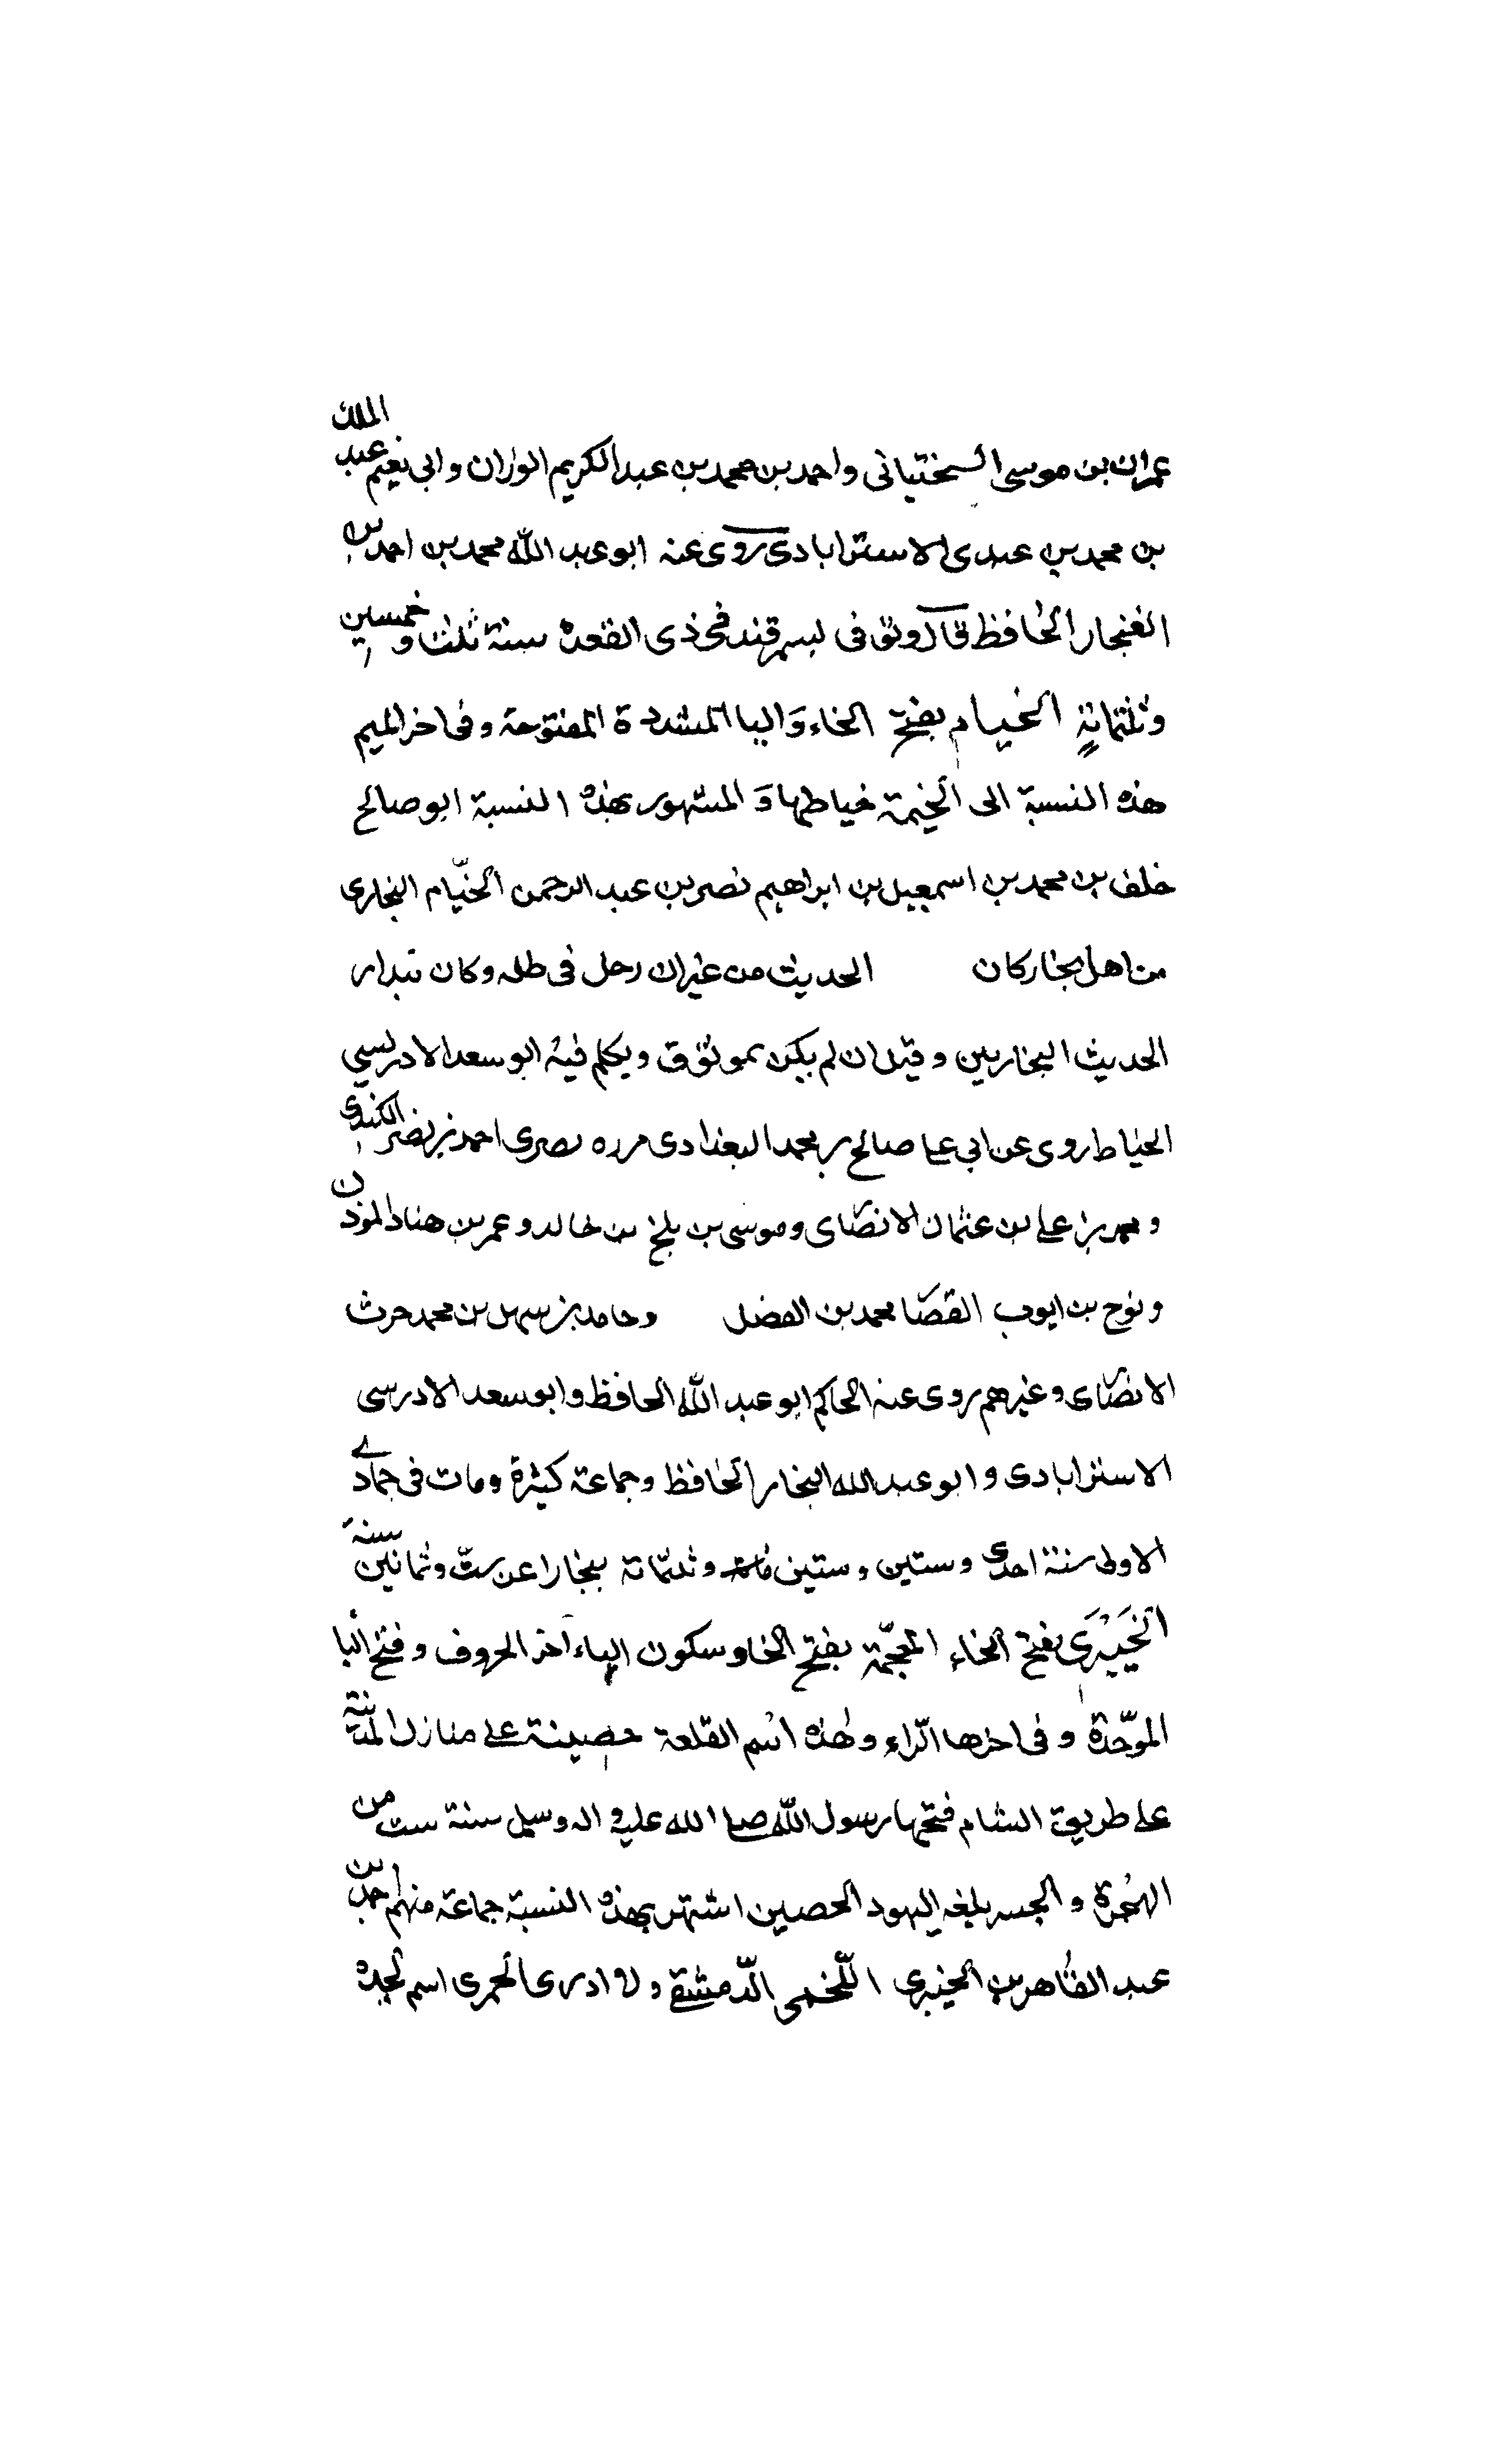 عمران بن موسى السختيانى واحمد بن محمد بن عبد الكريم الوزان وابى نعيم عبد الملك
بن محمد بن عدى الاسترابادى روى عنه ابو عبد الله محمد بن احمد بن
الغنجار الحافظ قال وتوفى لبسمرقند فى ذى القعده سنة ثلث وخمسين
وثلثمائة الخيام بفتح الخاء واليا المشددة المفتوحة وفى اخر الميم
هذه النسبة الى الخيمة خياطها و المشهور بهذه النسبة ابو صالح
خلف بن محمد بن اسمعيل بن ابراهيم نصر بن عبد الرحمن الخيّام البخارى
من اهل بخار كان الحديث من غير ان رحل فى طلبه وكان نبدار
الحديث البخاريين وقيل ان لم يكن بموثوق ويكلم فيه ابو سعد الادريسي
الخياط روى عن ابي على صالح بن محمد البغدادى نصرى احمد بن نصر الكندى
و على بن عثمان الانصاى وموسى بن بلخ بن خالد وعمر بن هناد الموذن
ونوح بن ايوب القصا محمد بن الفضل وحامد بن سهل بن محمد حرث
الانصاى وغيرهم روى عنه الحاكم ابو عبد الله الحافظ وابو سعد الادرسى
الاسترابادى و ابو عبد الله البخار الحافظ وجماعة كثيرة ومات فى جمادے
الاولى سنة احدى وستين وستين وثلثمائة ببخارا عن ستّ وثمانين سنة
الخَيبَرَى بفتح الخاء المعجّمة بفتح الخا وسكون الياء آخر الحروف وفتح البا
الموّحدة وفى اخرها الرّاء وهذه اسم القلعة حصينة على منازل المدينة
على طريق الشام فتحها رسول الله صلى الله عليه واله وسلم سنة ست من
الهجرة و الجسر بلغة اليهود الحصين اشتهر بهذه النسبة جماعة منهم احمد بن
عبد القاهر بن الخيبرى اللّخمى الدّمشقے ولا ادرى الحمرى اسم لجده